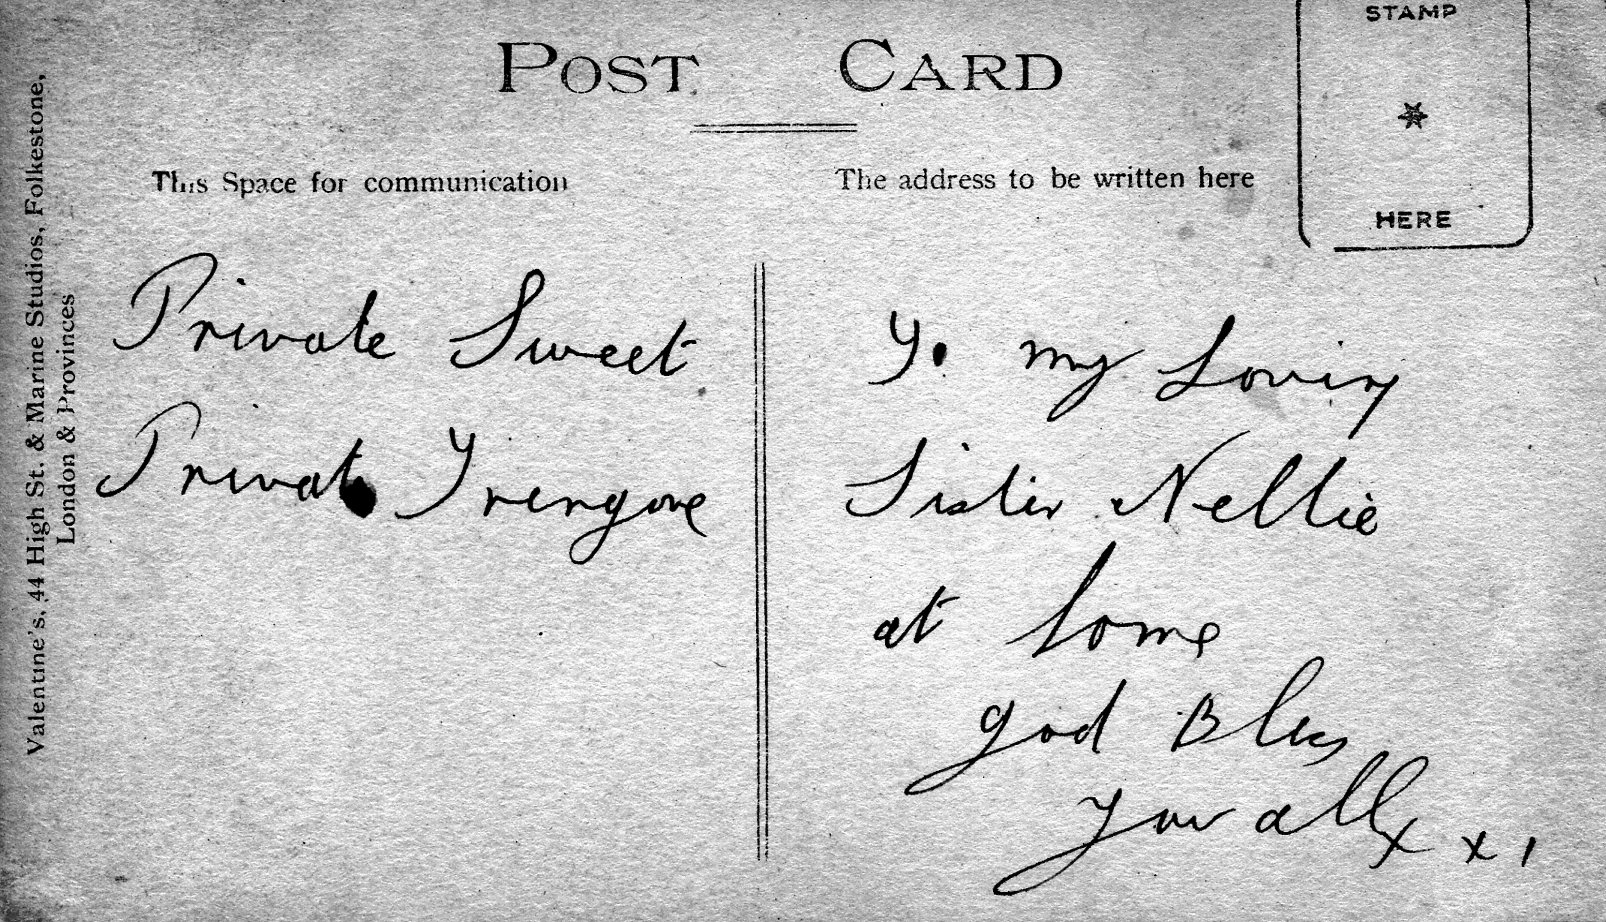 POST CARD
STAMP
HERE
This Space for communication
The address to be written here
Valentine's, 44 High St. & Marine Studios, Folkestone,
London & Provinces
Private Sweet
Private Trengove
To my Loving
Sister Nellie
at home
god Bless
you all x x